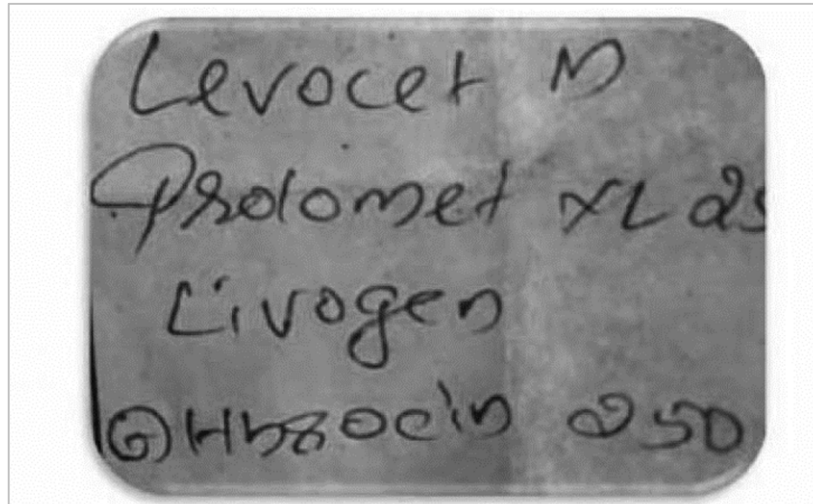 Levocet M
Prolomet XL 25
Livogen
Althrocin 250